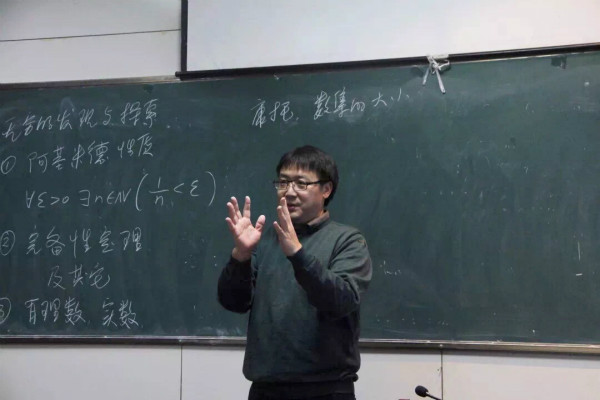 无穷的发现与探索
① 阿基米德性质
∀ε>0 ∃n∈N (1/n < ε)
② 完备性定理
及其它
③ 有理数 实数
康托 数集的大小